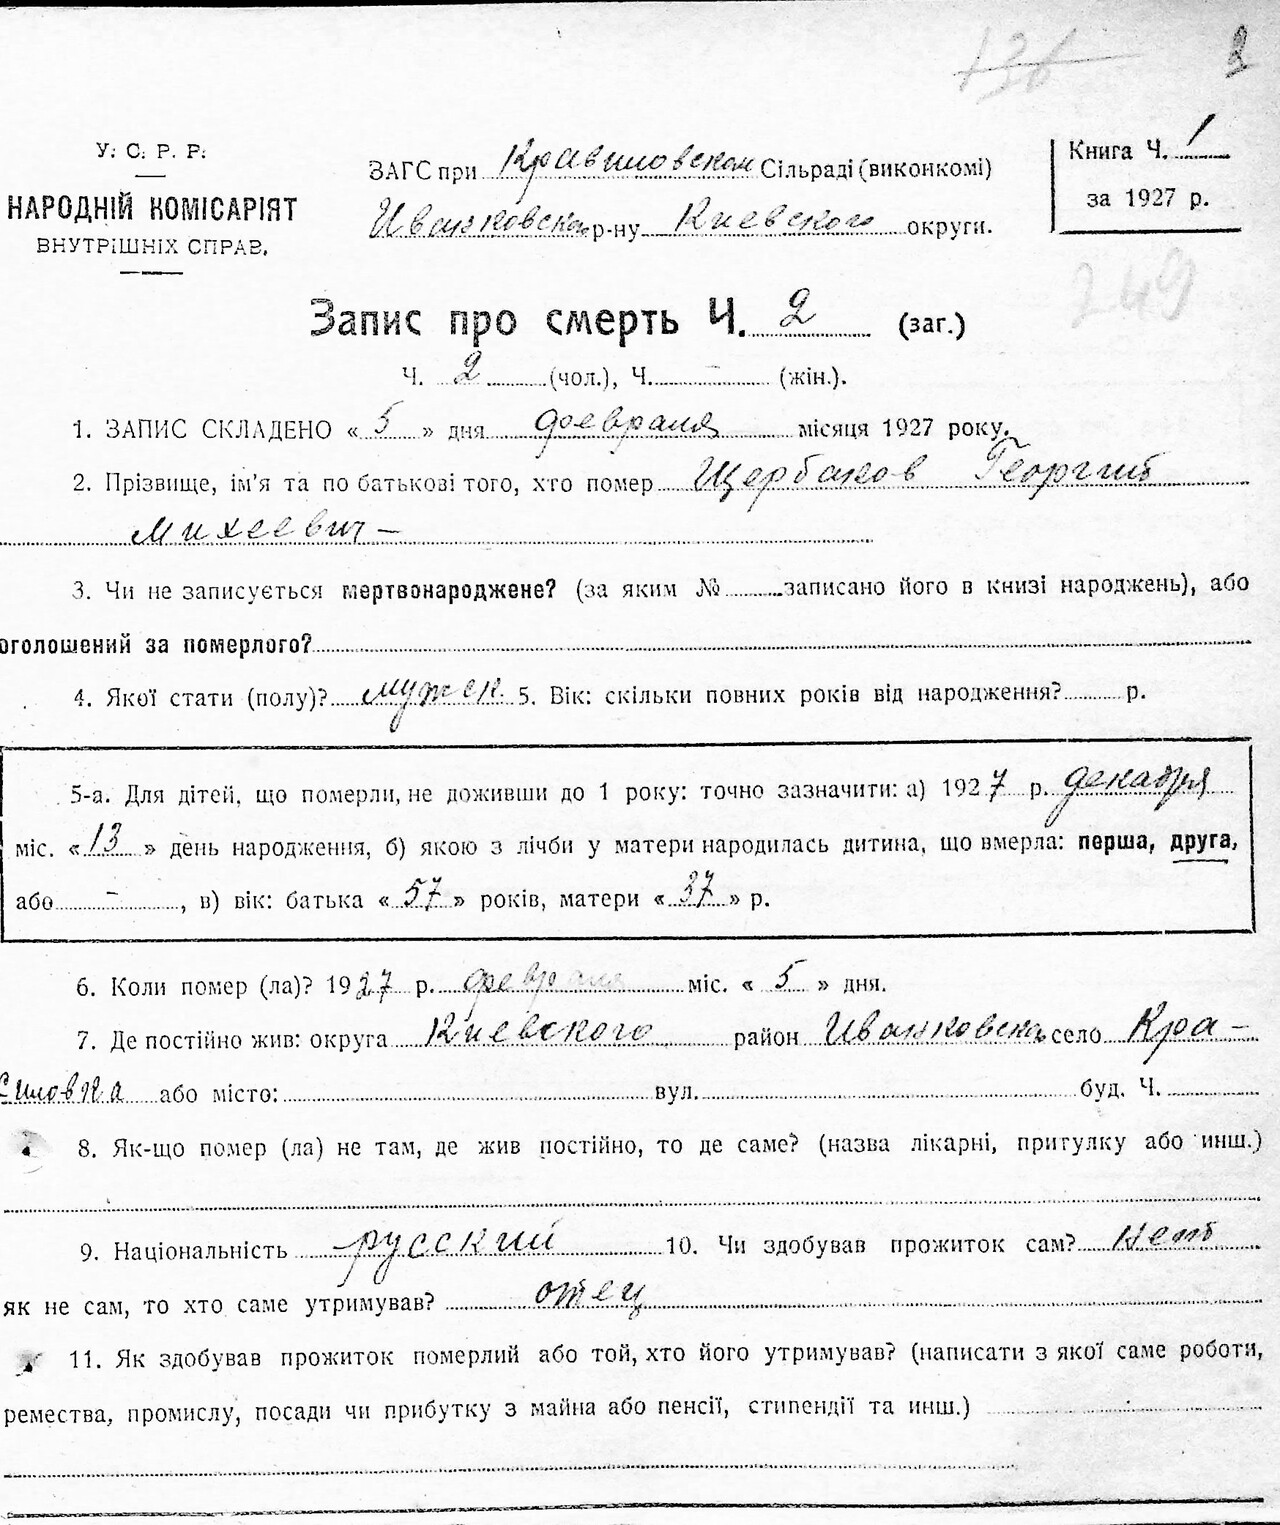 136
2
У. С. Р. Р.
НАРОДНІЙ КОМІСАРІЯТ
ВНУТРІШНІХ СПРАВ.
ЗАГС при Красиловском Сільраді (виконкомі)
Иванковском р-ну Киевского округи.
Книга Ч. 1
за 1927 р.
249
Запис про смерть Ч. 2 (заг.)
Ч. 2 (чол.), Ч. – (жін.).
1. ЗАПИС СКЛАДЕНО « 5 » дня февраля місяця 1927 року.
2. Прізвище, ім'я та по батькові того, хто помер Щербаков Георгий
Михеевич –
3. Чи не записується мертвонароджене? (за яким № записано його в книзі народжень), або
оголошений за померлого?
4. Якої стати (полу)? мужск. 5. Вік: скільки повних років від народження? р.
5-а. Для дітей, що померли, не доживши до 1 року: точно зазначити: а) 1927 р. декабря
міс. « 13 » день народження, б) якою з лічби у матери народилась дитина, що вмерла: перша, друга,
або –, в) вік: батька « 57 » років, матери « 37 » р.
6. Коли помер (ла)? 1927 р. февраля міс. « 5 » дня.
7. Де постійно жив: округа Киевского район Иванковском село Кра-
силовка або місто: вул. буд. Ч.
8. Як-що помер (ла) не там, де жив постійно, то де саме? (назва лікарні, притулку або инш.)
9. Національність русский 10. Чи здобував прожиток сам? нет
як не сам, то хто саме утримував? отец
11. Як здобував прожиток померлий або той, хто його утримував? (написати з якої саме роботи,
ремества, промислу, посади чи прибутку з майна або пенсії, стипендії та инш.)